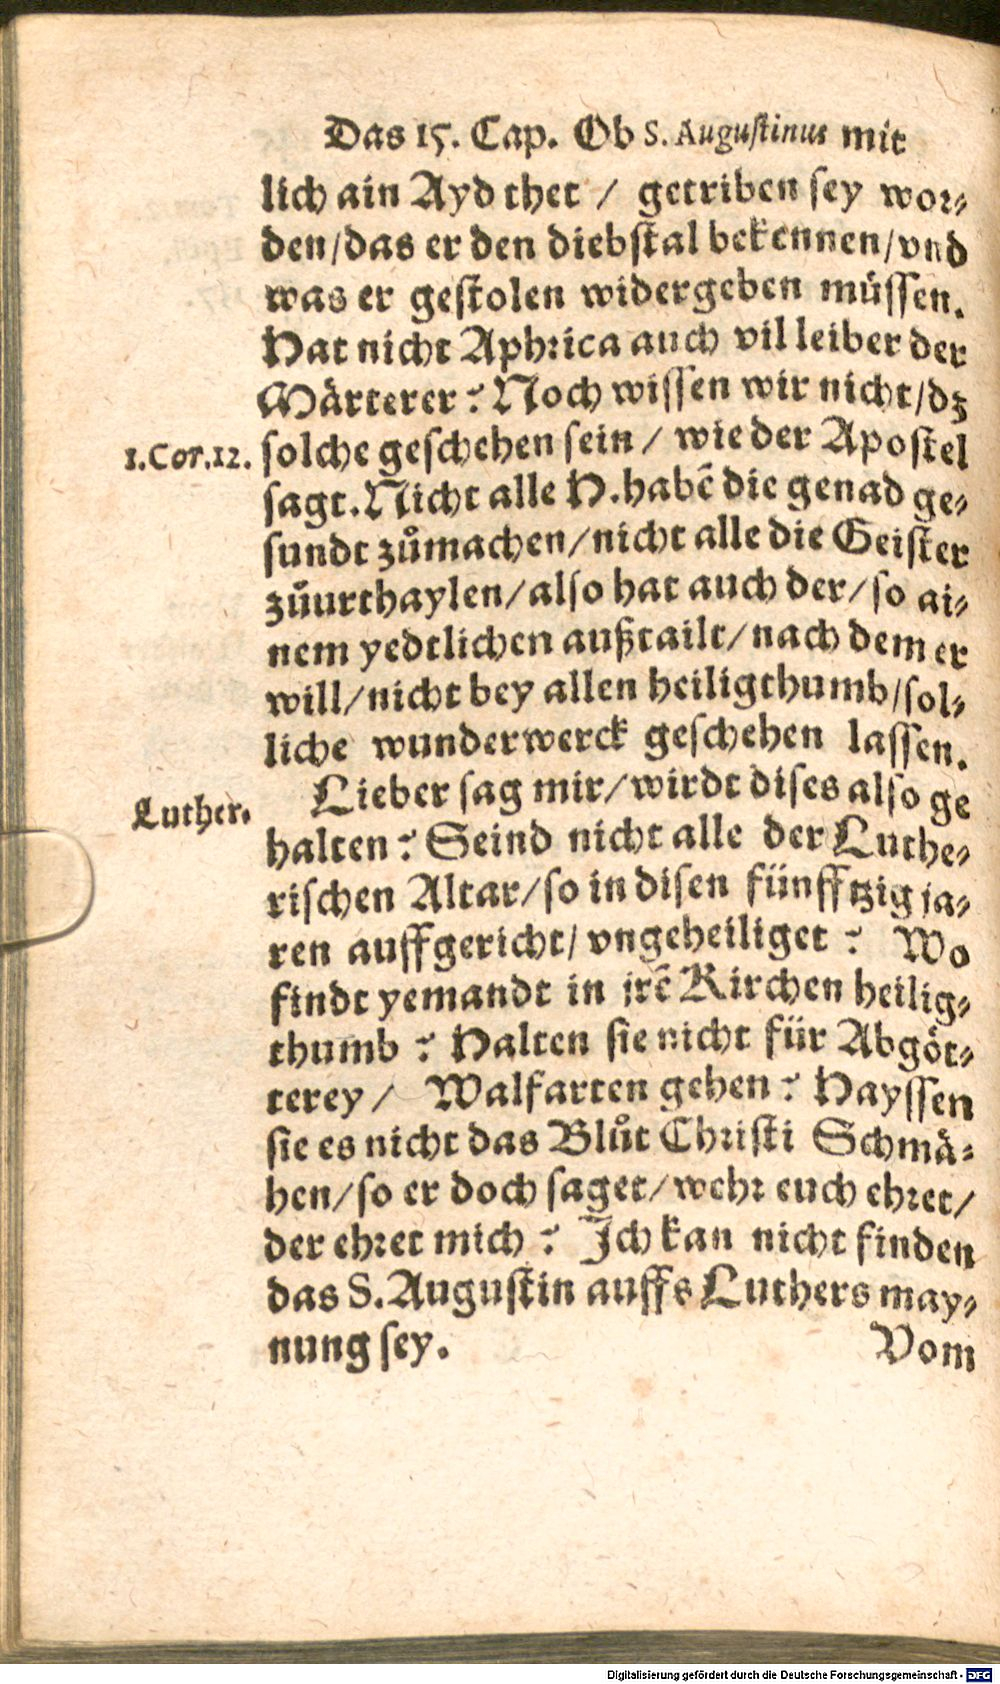 Das 15. Cap. Ob S. Augustinus mit
lich ain Ayd thet / getriben sey wor⸗
den/das er den diebstal bekennen/vnd
was er gestolen widergeben müssen.
Hat nicht Aphrica auch vil leiber der
Märterer? Noch wissen wir nicht/dz
1.Cor.12. solche geschehen sein / wie der Apostel
sagt. Nicht alle H. habẽ die genad ge⸗
sundt zůmachen/nicht alle die Geister
zůurthaylen/also hat auch der/so ai⸗
nem yedtlichen außtailt/nach dem er
will/nicht bey allen heiligthumb/sol⸗
liche wunderwerck geschehen lassen.
Luther. Lieber sag mir/wirdt dises also ge
halten? Seind nicht alle der Luthe⸗
rischen Altar/so in disen fünfftzig ja⸗
ren auffgericht/vngeheiliget? Wo
findt yemandt in jrẽ Kirchen heilig⸗
thumb? Halten sie nicht für Abgöt⸗
terey / Walfarten gehen? Hayssen
sie es nicht das Blůt Christi Schmä⸗
hen/so er doch saget/wehr euch ehret/
der ehret mich? Ich kan nicht finden
das S. Augustin auffs Luthers may⸗
nung sey. Vom
Digitalisierung gefördert durch die Deutsche Forschungsgemeinschaft - DFG